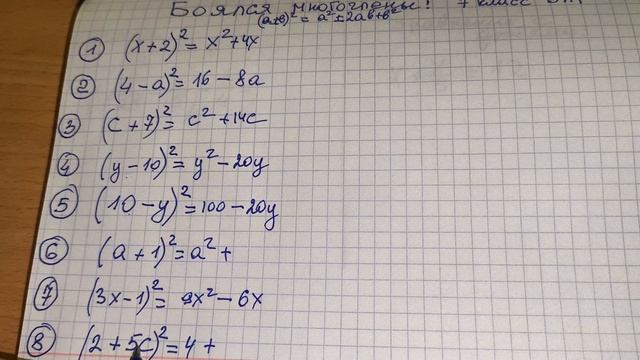 Боялся многочлены! 7 класс
(a±b)² = a² ± 2ab + b²
① (x+2)² = x² + 4x
② (4-a)² = 16 - 8a
③ (c+7)² = c² + 14c
④ (y-10)² = y² - 20y
⑤ (10-y)² = 100 - 20y
⑥ (a+1)² = a² +
⑦ (3x-1)² = 9x² - 6x
⑧ (2+5c)² = 4 +